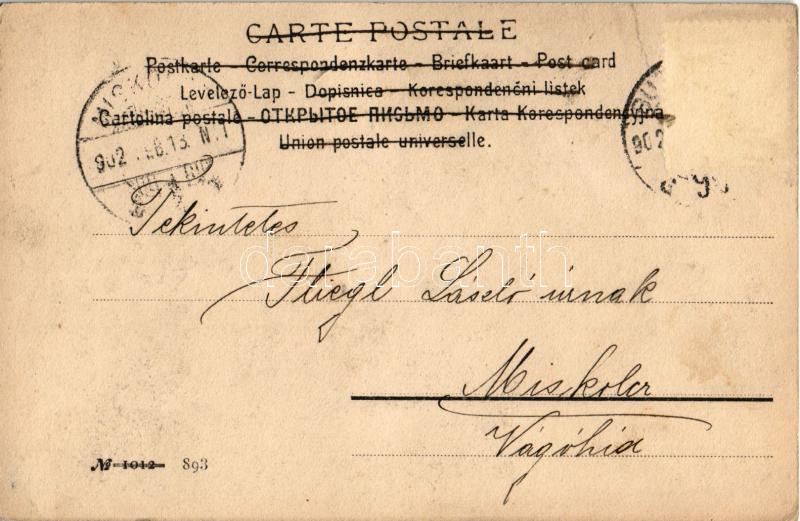 CARTE POSTALE
Postkarte – Correspondenzkarte – Briefkaart – Post card
Levelező-Lap – Dopisnice – Korespondenční listek
Cartolina postale – ОТКРЫТОЕ ПИСЬМО – Karta Korespondencyjna
Union postale universelle.
MISKO
902
13. N. 1
BU
902
Tekintetes
Fliegl László úrnak
Miskolcz
Vágóhid
darabanth
№ 1012 893